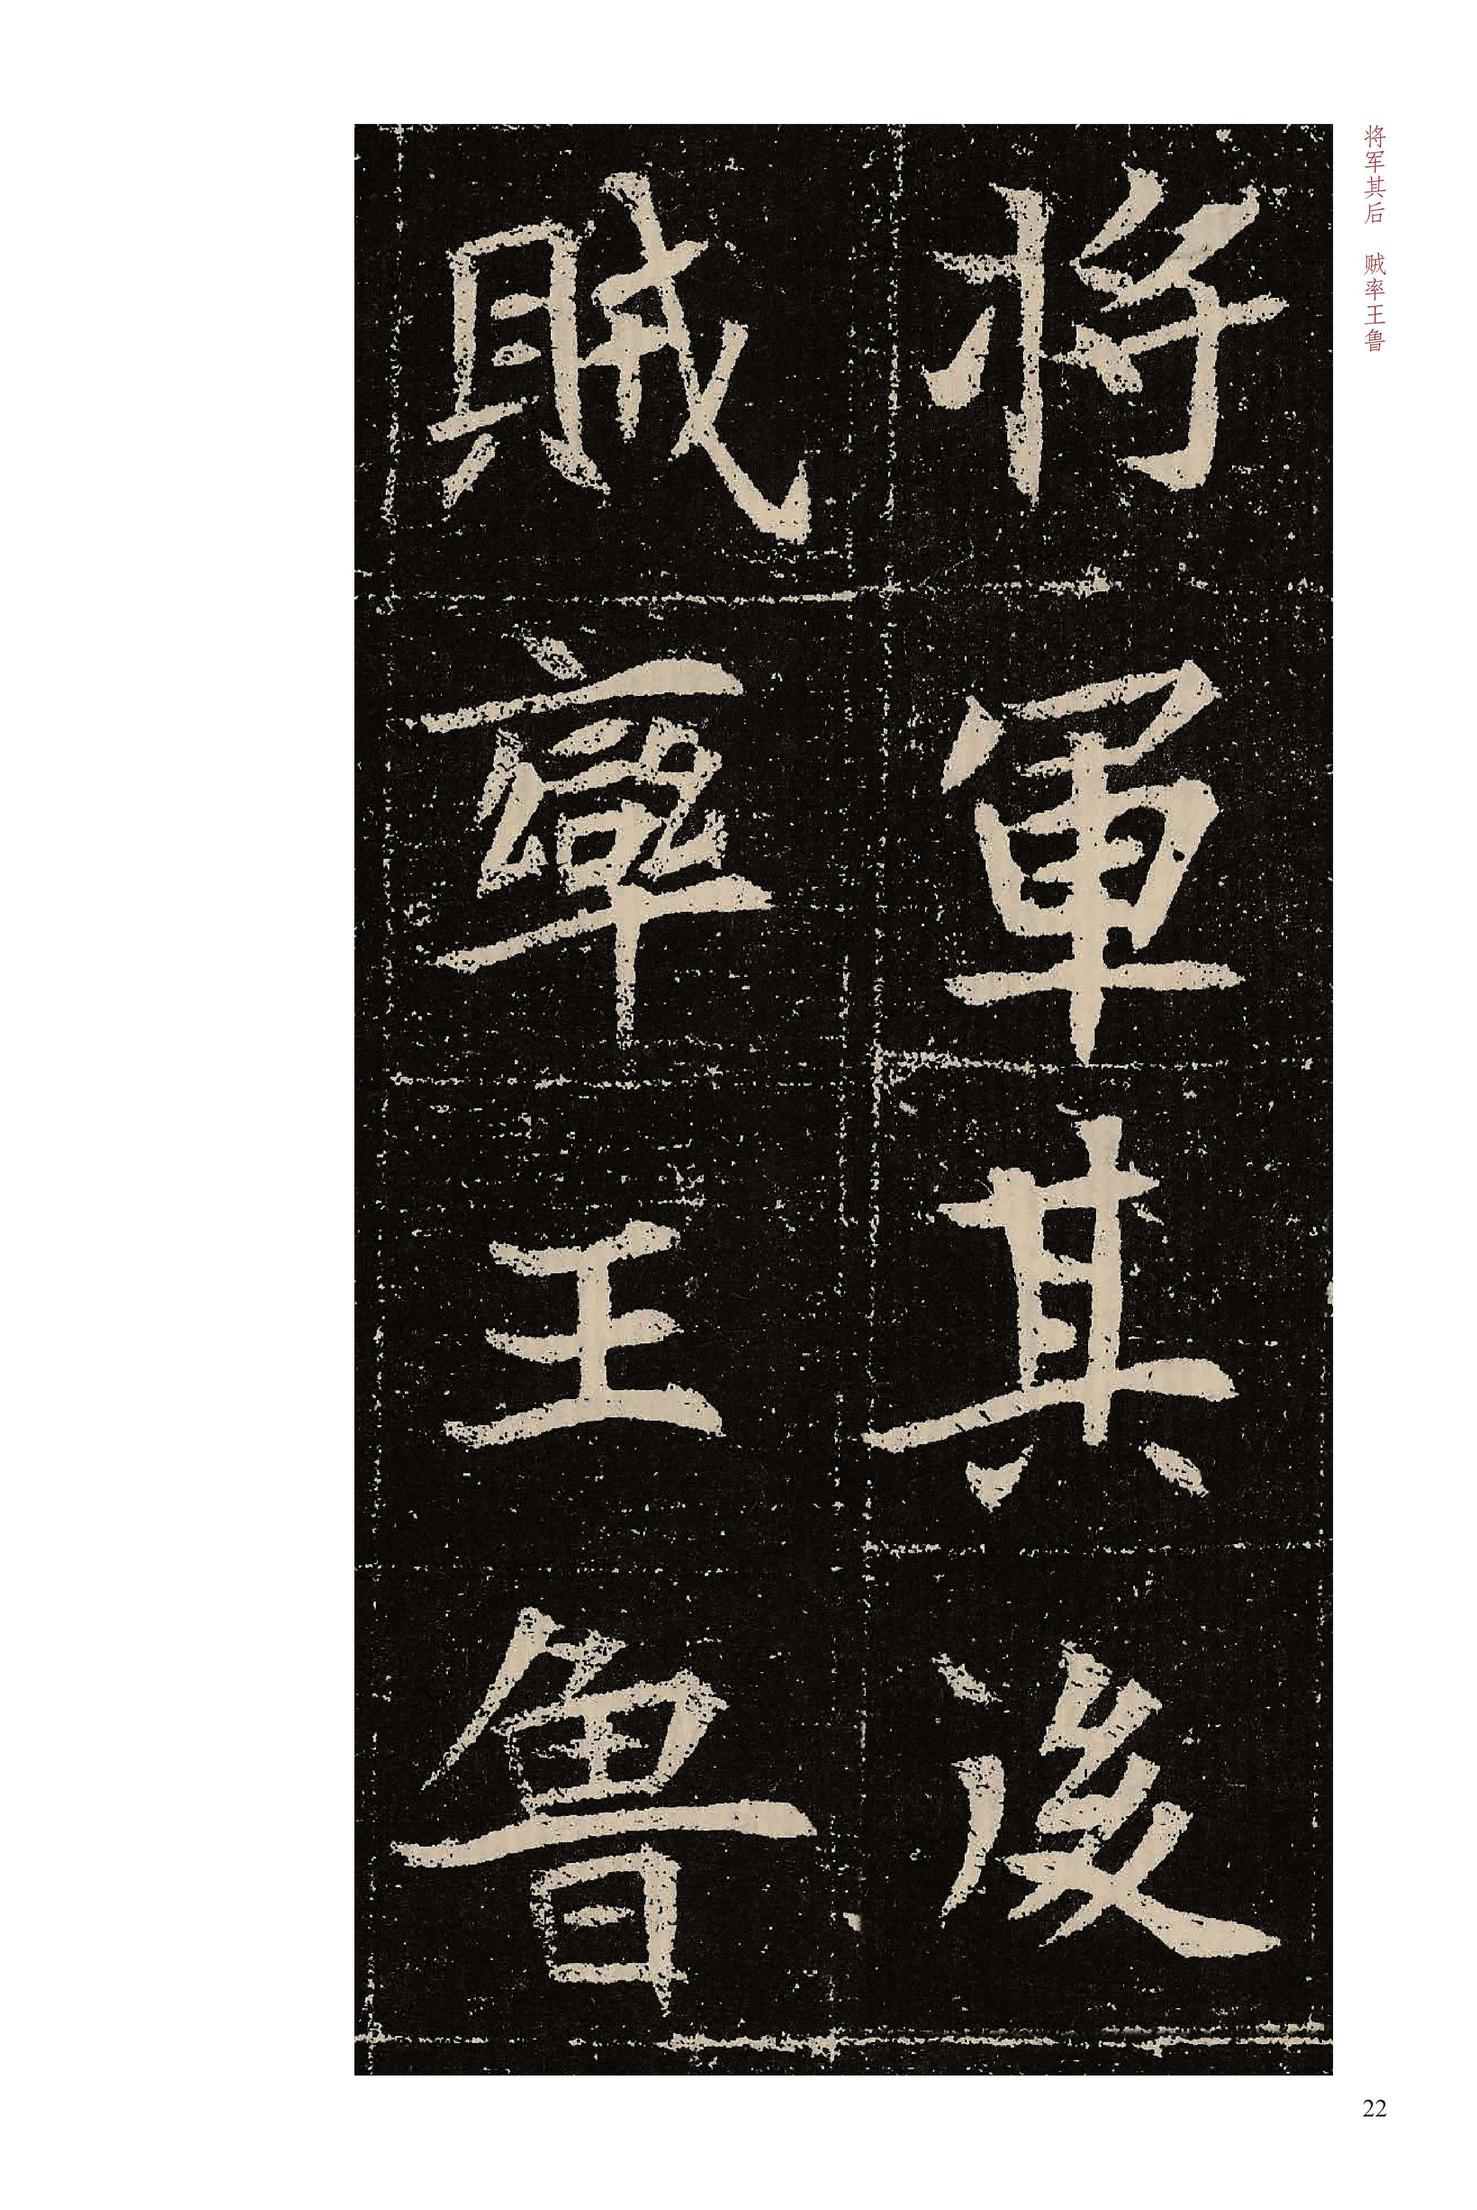 将军其后　贼率王鲁
將軍其後
賊率王魯
22